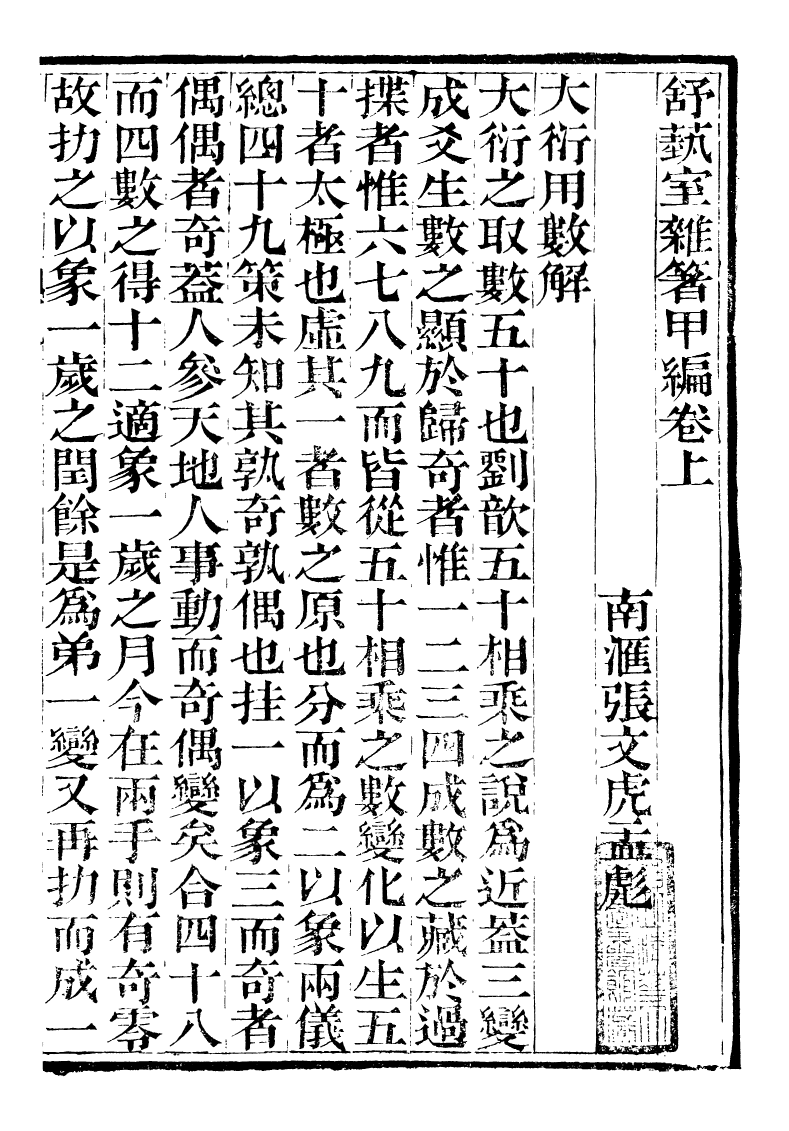 舒藝室雜箸甲編卷上
南滙張文虎孟彪
大衍用數解
大衍之取數五十也劉歆五十相乘之說爲近葢三變
成爻生數之顯於歸奇者惟一二三四成數之藏於過
揲者惟六七八九而皆從五十相乘之數變化以生五
十者太極也虛其一者數之原也分而爲二以象兩儀
總四十九策未知其孰奇孰偶也挂一以象三而奇者
偶偶者奇葢人參天地人事動而奇偶變矣合四十八
而四數之得十二適象一歲之月今在兩手則有奇零
故扐之以象一歲之閏餘是爲弟一變又再扐而成一